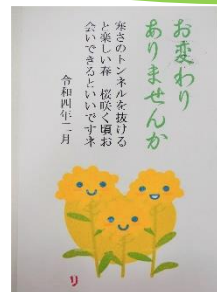 お変わり
ありませんか
寒さのトンネルを抜ける
と楽しい春　桜咲く頃お
会いできるといいですネ
令和四年二月
り